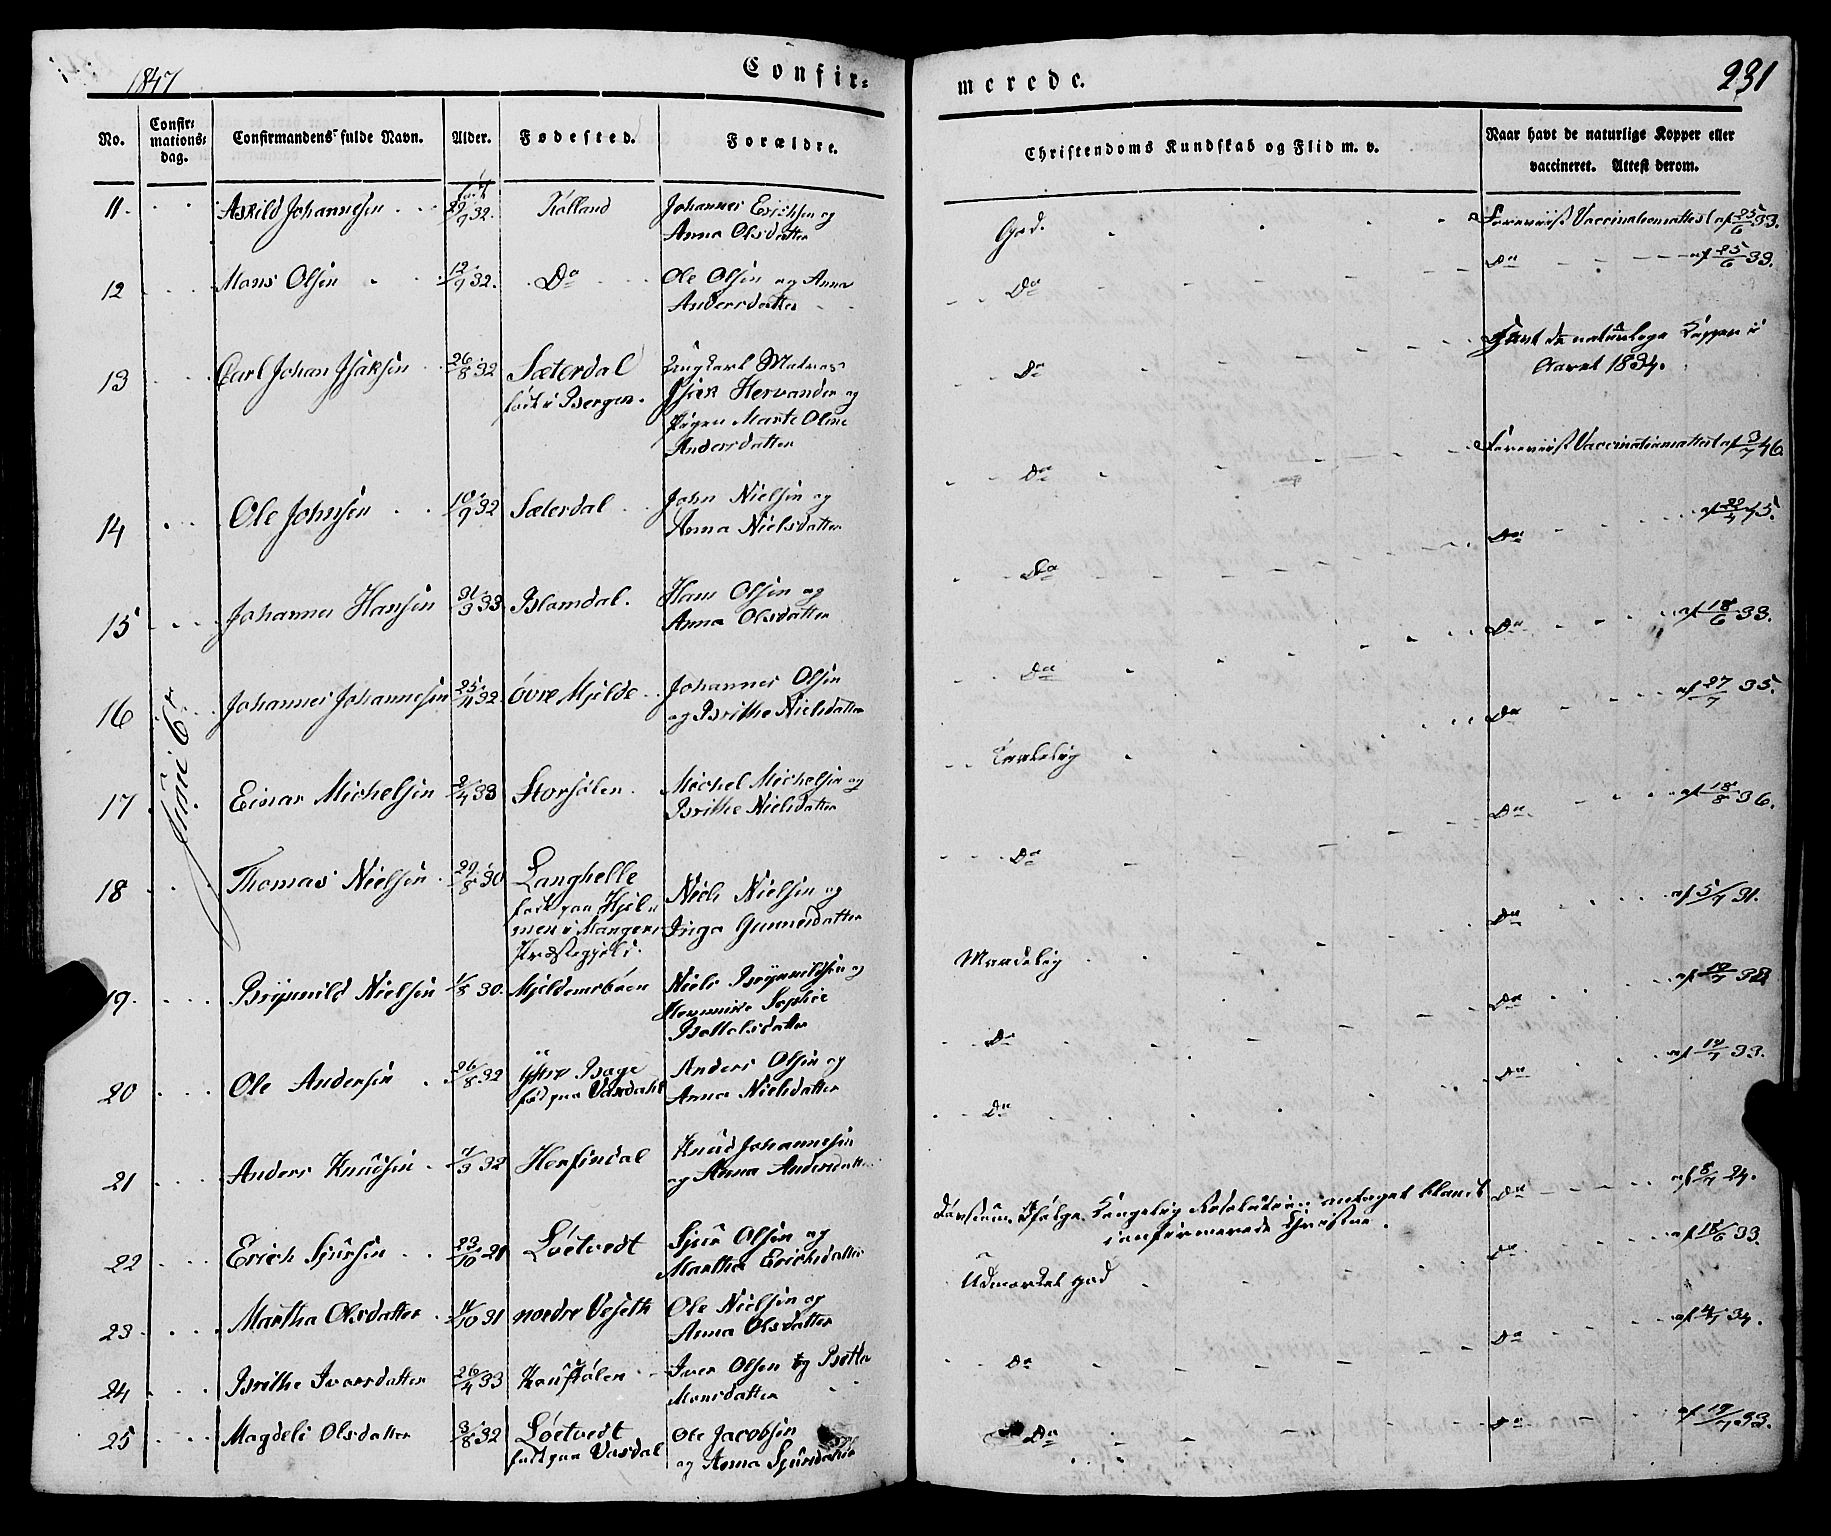 1847 Confir= merede. 231
No. Confir=mations=dag. Confirmandens fulde Navn. Alder. Fødested. Forældre. Christendoms Kundskab og Flid m. v. Naar havt de naturlige Kopper eller vaccineret. Attest derom.
11. Askild Johannesen 29/9 32. Kalland Johannes Erichsen og God. Foreviist Vaccinationsattest af 25/6 33.
Anna Olsdatter
12 Mons Olsen 12/9 32. Do Ole Olsen og Anna Do Do af 25/6 33.
Andersdatter
13 Carl Johan Isaksen 26/8 32 Sæterdal Ungkarl Matros Do Havt de naturlige Kopper i
født i Bergen. Isak Hervander og Aaret 1834.
Pigen Marte Oline
Andersdatter
14 Ole Johnsen 10/9 32 Sæterdal John Nielsen og Do Foreviist Vaccinationsattest af 3/7 46.
Anna Nielsdatter
15 Johannes Hansen 31/3 33 Blomdal. Hans Olsen og Do Do af 22/7 45.
Anna Olsdatter
16 Johannes Johannesen 25/11 32 Øvre Mjelde Johannes Olsen Do Do af 18/6 33.
og Brithe Nielsdatter
Juni 6te
17 Einar Michelsen 2/4 33 Storsølen. Michel Michelsen og Taalelig Do af 27/7 35.
Brithe Nielsdatter
18 Thomas Nielsen 29/8 30 Langhelle Niels Nielsen og Do Do af 18/8 36.
født paa Hjel-
men i Mangers Inga Gunnersdatter
Præstegjeld.
19. Brynnild Nielsen 1/8 30. Mjeldemobøen Niels Brynnildsen og Maadelig Do af 5/7 31.
Sophie
Dattersdatter
20 Ole Andersen 26/8 32 Ytre Bage Anders Olsen og Do Do af 12/7 32
fød paa Vasdahl Anna Nielsdatter
21 Anders Knudsen 7/3 32 Herfindal Knud Johannesen Do Do af 12/7 33.
og Anna Andersdatter
22 Erich Sjursen 23/10 21 Løetvedt Sjur Olsen og Døvstum. Ifølge Kongelig Resolution antaget blandt Do af 8/7 24.
Martha Erichsdatter confirmerede Christne.
23 Martha Olsdatter 11/10 31 nordre Veseth Ole Nielsen og Udmærket god Do af 18/6 33.
Anna Olsdatter
24 Brithe Iversdatter 26/4 33 Koustølen Iver Olsen og Do Do af 4/7 34.
Monsdatter
25 Magdeli Olsdatter 3/8 32 Løetvedt Ole Jacobsen Do Do af 19/7 33.
født paa Vasdal og Anna Sjursdatter